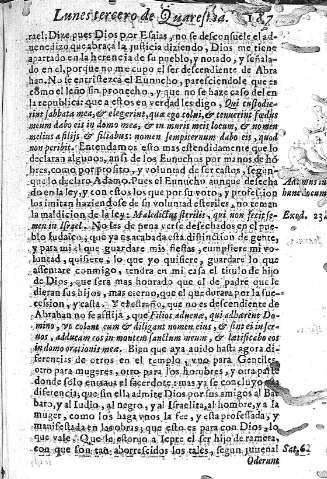 Lunes tercero de Quaresma. 187
rael: Dize pues Dios por Esaias, no se desconsuele el ad-
uenedizo que abraça la justicia diziendo, Dios me tiene
apartado en la herencia de su pueblo, y notado, y señala-
do en el, porque no me cupo el ser descendiente de Abra
han. No se entristezca el Eunucho, paresciendole que es
como el leño sin prouecho, y que no se haze caso del en
la republica: que a estos en verdad les digo, Qui custodie-
rint sabbata mea, & elegerint, quæ ego volui, & tenuerint fœdus
meum dabo eis in domo mea, & in muris meis locum, & nomen
melius a filijs & filiabus: nomen sempiternum dabo eis, quod
non peribit. Entendamos esto mas estendidamente que lo
declaran algunos, ansi de los Eunuchos por manos de hõ-
bres, como por proposito, y voluntad de ser castos, segun
que lo declaro Adamo. Pues el Eunucho aunque desecha
do en la ley, y con estos los que por su voto, y profession
los imitan haziendose de su voluntad esteriles, no teman
la maldicion de la ley: Maledictus sterilis, qui non fecit se-
men in Israel. No les de pena verse desechados en el pue-
blo Iudaico, que ya es acabada esta distinction de gente,
y para mi el que guardare mis fiestas, cumpliere mi vo-
luntad, quisiere lo que yo quisiere, guardare lo que
assentare conmigo, tendra en mi casa el titulo de hijo
de Dios, que sera mas honrado que el de padre que le
dieran sus hijos, mas eterno, que el que durara por la suc-
cession, y casta. Y el estraño, que no es descendiente de
Abrahan no se aflija, que Filios aduenæ, qui adhærent Domi-
no, vt colant eum & diligant nomen eius, & sint ei in ser-
uos, adducam eos in montem sanctum meum, & lætificabo eos
in domo orationis meæ. Bien que aya auido hasta agora di-
ferencias de otros en el templo, vno para Gentiles,
otro para mugeres, otro para los hombres, y otra parte
donde solo entraua el sacerdote: mas ya se concluyo esta
diferencia, que sin ella admite Dios por sus amigos al Bar
baro, y al Iudio, al negro, y al Israelita, al hombre, y a la
muger, como los haga vnos la fee, y esta professada, y
manifestada en las obras, que esto es para con Dios, lo
que vale. Que lo estoruo a Iepte el ser hijo de ramera,
con que son tan aborrescidos los tales, segun Iuuenal
Oderunt
Exod. 23.
Sat. 6.